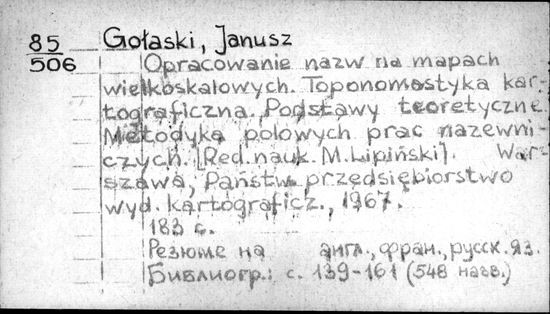 85
506
Gołaski, Janusz
Opracowanie nazw na mapach
wielkoskalowych. Toponomastyka kar-
tograficzna. Podstawy teoretyczne.
Metodyka polowych prac nazewni-
czych. [Red. nauk. M. Lipiński]. War-
szawa, Państw. przedsiębiorstwo
wyd. kartograficz., 1967.
183 с.
Резюме на англ., фран., русск. яз.
Библиогр.: с. 139-161 (548 назв.)